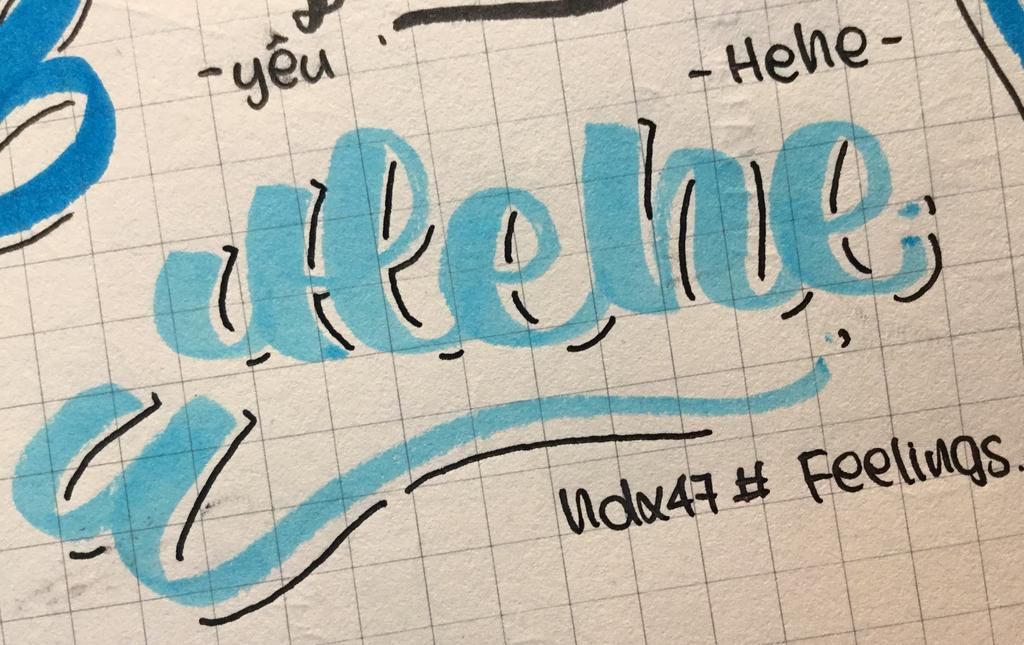 -yêu
-Hehe-
Hehe
ndx47# Feelings.